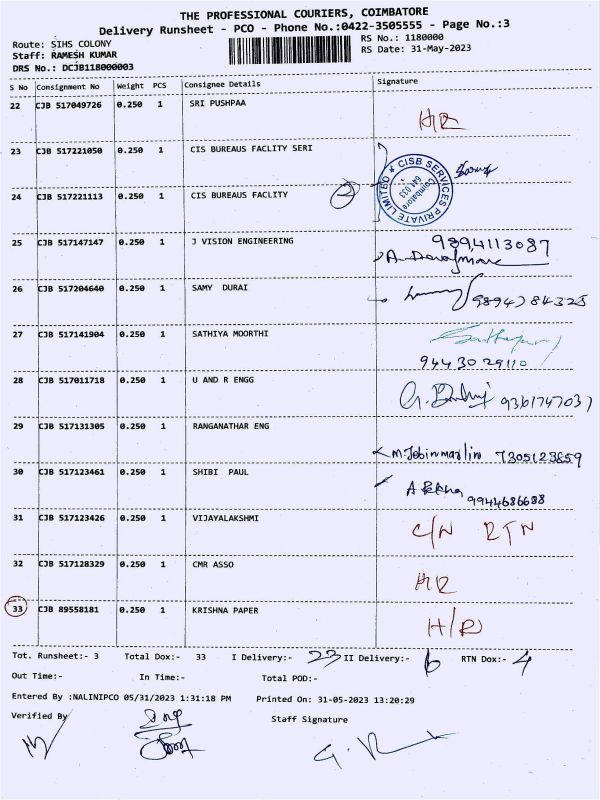 THE PROFESSIONAL COURIERS, COIMBATORE
Delivery Runsheet - PCO - Phone No.:0422-3505555 - Page No.:3
Route: SIHS COLONY RS No.: 1180000
Staff: RAMESH KUMAR RS Date: 31-May-2023
DRS No.: DCJB118000003
S No Consignment No Weight PCS Consignee Details Signature
22 CJB 517049726 0.250 1 SRI PUSHPAA H/R
23 CJB 517221050 0.250 1 CIS BUREAUS FACLITY SERI
CISB SERVICES PRIVATE LIMITED ★ Coimbatore 641 033
24 CJB 517221113 0.250 1 CIS BUREAUS FACLITY 2
25 CJB 517147147 0.250 1 J VISION ENGINEERING 9894113087
26 CJB 517204640 0.250 1 SAMY DURAI 9894784325
27 CJB 517141904 0.250 1 SATHIYA MOORTHI
9443029110
28 CJB 517011718 0.250 1 U AND R ENGG 9361747037
29 CJB 517131305 0.250 1 RANGANATHAR ENG
M. Jobinmarlin 7305123859
30 CJB 517123461 0.250 1 SHIBI PAUL
9944686688
31 CJB 517123426 0.250 1 VIJAYALAKSHMI C/N RTN
32 CJB 517128329 0.250 1 CMR ASSO H/R
33 CJB 89558181 0.250 1 KRISHNA PAPER H/R
Tot. Runsheet:- 3 Total Dox:- 33 I Delivery:- 23 II Delivery:- 6 RTN Dox:- 4
Out Time:- In Time:- Total POD:-
Entered By :NALINIPCO 05/31/2023 1:31:18 PM Printed On: 31-05-2023 13:20:29
Verified By Staff Signature